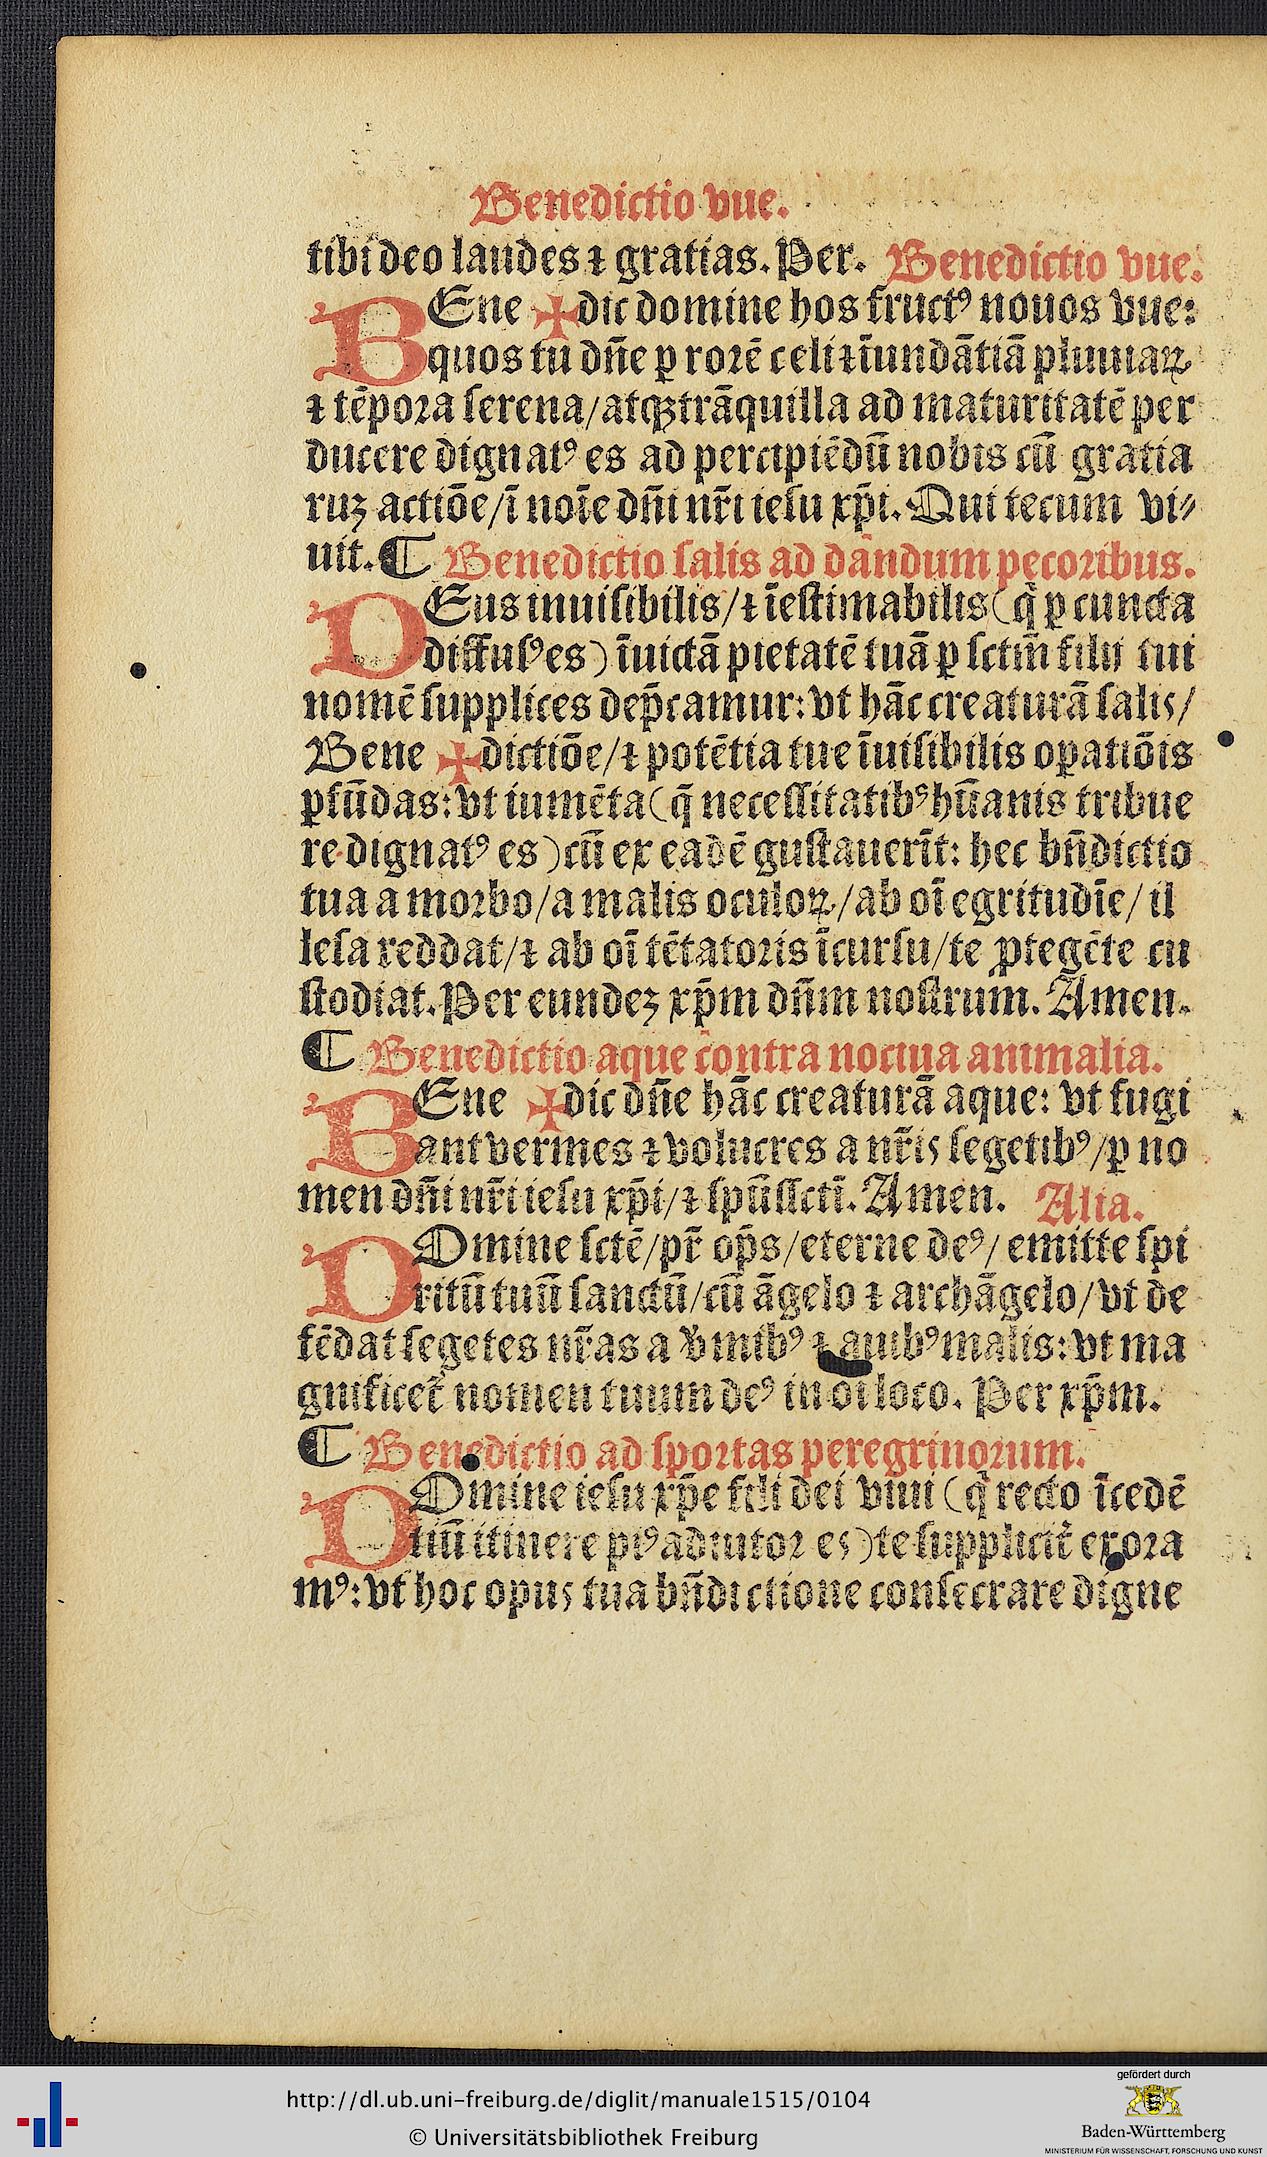 Benedictio vue.
tibi deo laudes ⁊ gratias. Per. Benedictio vue.
BEne ✠ dic domine hos fructꝰ nouos vue:
quos tu dñe ꝑ rorē celi ⁊ īundātiā pluuiaꝝ
⁊ tēpora serena/atqꝫ trāquilla ad maturitatē per
ducere dignatꝰ es ad percipiēdū nobis cū gratia
ruꝫ actiōe/ī noīe dñi nr̄i iesu xp̄i. Qui tecum vi⸗
uit. ¶ Benedictio salis ad dandum pecoribus.
DEus inuisibilis/⁊ īestimabilis (q̇ ꝑ cuncta
diffusꝰ es) īuictā pietatē tuā ꝑ sctm̄ filij tui
nomē supplices dep̄camur: vt hāc creaturā salis/
Bene ✠ dictiōe/⁊ potētia tue īuisibilis oꝑatiōis
ꝑfūdas: vt iumēta (q̄ necessitatibꝰ hūanis tribue
re dignatꝰ es) cū ex eadē gustauerīt: hec bn̄dictio
tua a morbo/a malis oculoꝝ/ab oī egritudīe/il
lesa reddat/⁊ ab oī tētatoris īcursu/te ꝓtegēte cu
stodiat. Per eundeꝫ xp̄m dñm nostrum. Amen.
¶ Benedictio aque contra nociua animalia.
BEne ✠ dic dñe hāc creaturā aque: vt fugi
ant vermes ⁊ volucres a nr̄is segetibꝰ/ꝑ no
men dñi nr̄i iesu xp̄i/⁊ spūssctī. Amen. Alia.
DOmine sctē/pr̄ op̄s/eterne deꝰ/emitte spi
ritū tuū sanctū/cū āgelo ⁊ archāgelo/vt de
fēdat segetes nr̄as a v̓mibꝰ ⁊ auibꝰ malis: vt ma
gnificet᷑ nomen tuum deꝰ in oī loco. Per xp̄m.
¶ Benedictio ad sportas peregrinorum.
DOmine iesu xp̄e fili dei viui (q̇ recto īcedē
tiū itinere piꝰ adiutor es) te supplicit᷑ exora
mꝰ: vt hoc opus tua bn̄dictione consecrare digne
http://dl.ub.uni-freiburg.de/diglit/manuale1515/0104
© Universitätsbibliothek Freiburg
gefördert durch
Baden-Württemberg
MINISTERIUM FÜR WISSENSCHAFT, FORSCHUNG UND KUNST